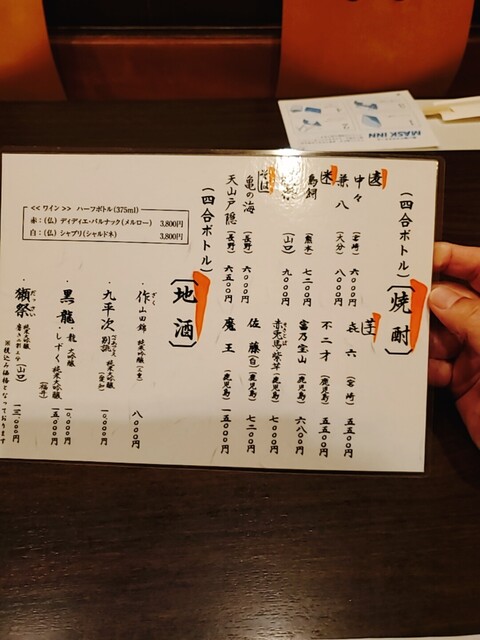 〔焼酎〕
(四合ボトル)
麦
中々 (宮崎) 六〇〇〇円
兼八 (大分) 八〇〇〇円
米
鳥飼 (熊本) 七二〇〇円
(山口) 九〇〇〇円
そば
亀の海 (長野) 六〇〇〇円
天山戸隠 (長野) 六五〇〇円
芋
㐂六 (宮崎) 五五〇〇円
不二才 (鹿児島) 五五〇〇円
富乃宝山 (鹿児島) 六八〇〇円
赤兎馬紫芋 (鹿児島) 七〇〇〇円
佐藤(白) (鹿児島) 七二〇〇円
魔王 (鹿児島) 一五〇〇〇円
〔地酒〕
(四合ボトル)
・作 ざく 山田錦 純米吟醸 八〇〇〇円
・九平次 別誂 純米大吟醸 (愛知) 一〇、〇〇〇円
・黒龍
・龍 大吟醸 一〇、〇〇〇円
・しずく 純米大吟醸 (福井) 一五、〇〇〇円
・獺祭 だっさい 純米大吟醸 (山口) 一三、〇〇〇円
※税込み価格となっております
<< ワイン >> ハーフボトル(375ml)
赤:(仏) ディディエ・パルナック(メルロー) 3,800円
白:(仏) シャブリ(シャルドネ) 3,800円
MASK INN